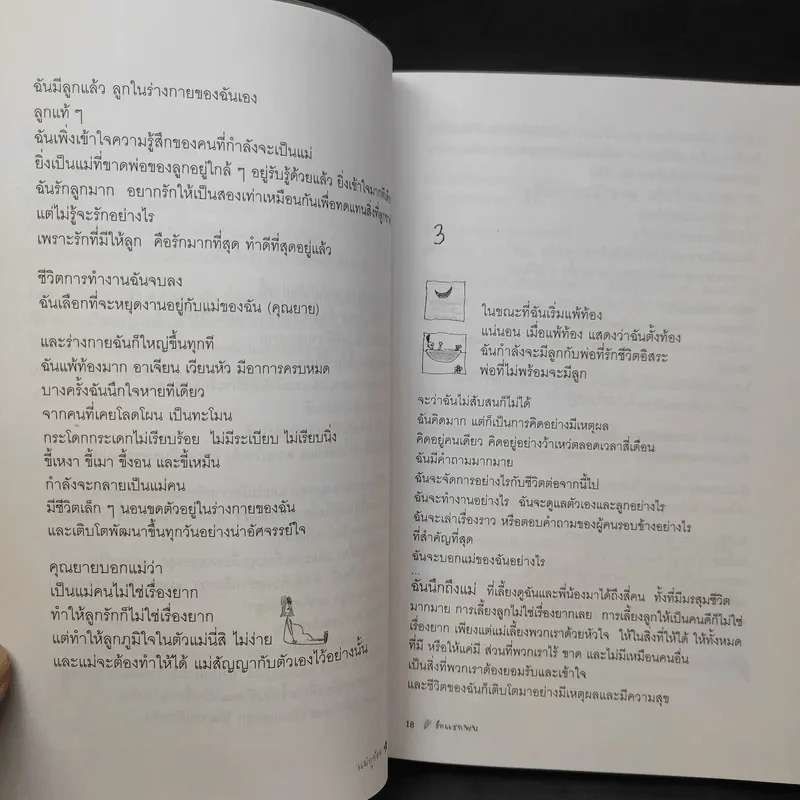 ฉันมีลูกแล้ว ลูกในร่างกายของฉันเอง
ลูกแท้ ๆ
ฉันเพิ่งเข้าใจความรู้สึกของคนที่กำลังจะเป็นแม่
ยิ่งเป็นแม่ที่ขาดพ่อของลูกอยู่ใกล้ ๆ อยู่รับรู้ด้วยแล้ว ยิ่งเข้าใจมาก
ฉันรักลูกมาก อยากรักให้เป็นสองเท่าเหมือนกันเพื่อทดแทนสิ่งที่ลูก
แต่ไม่รู้จะรักอย่างไร
เพราะรักที่มีให้ลูก คือรักมากที่สุด ทำดีที่สุดอยู่แล้ว
ชีวิตการทำงานฉันจบลง
ฉันเลือกที่จะหยุดงานอยู่กับแม่ของฉัน (คุณยาย)
และร่างกายฉันก็ใหญ่ขึ้นทุกที
ฉันแพ้ท้องมาก อาเจียน เวียนหัว มีอาการครบหมด
บางครั้งฉันนึกใจหายทีเดียว
จากคนที่เคยโลดโผน เป็นทะโมน
กระโดกกระเดกไม่เรียบร้อย ไม่มีระเบียบ ไม่เรียบนิ่ง
ขี้เหงา ขี้เมา ขี้งอน และขี้เหม็น
กำลังจะกลายเป็นแม่คน
มีชีวิตเล็ก ๆ นอนขดตัวอยู่ในร่างกายของฉัน
และเติบโตพัฒนาขึ้นทุกวันอย่างน่าอัศจรรย์ใจ
คุณยายบอกแม่ว่า
เป็นแม่คนไม่ใช่เรื่องยาก
ทำให้ลูกรักก็ไม่ใช่เรื่องยาก
แต่ทำให้ลูกภูมิใจในตัวแม่นี่สิ ไม่ง่าย
และแม่จะต้องทำให้ได้ แม่สัญญากับตัวเองไว้อย่างนั้น
3
ในขณะที่ฉันเริ่มแพ้ท้อง
แน่นอน เมื่อแพ้ท้อง แสดงว่าฉันตั้งท้อง
ฉันกำลังจะมีลูกกับพ่อที่รักชีวิตอิสระ
พ่อที่ไม่พร้อมจะมีลูก
จะว่าฉันไม่สับสนก็ไม่ได้
ฉันคิดมาก แต่ก็เป็นการคิดอย่างมีเหตุผล
คิดอยู่คนเดียว คิดอยู่อย่างว้าเหว่ตลอดเวลาสี่เดือน
ฉันมีคำถามมากมาย
ฉันจะจัดการอย่างไรกับชีวิตต่อจากนี้ไป
ฉันจะทำงานอย่างไร ฉันจะดูแลตัวเองและลูกอย่างไร
ฉันจะเล่าเรื่องราว หรือตอบคำถามของผู้คนรอบข้างอย่างไร
ที่สำคัญที่สุด
ฉันจะบอกแม่ของฉันอย่างไร
...
ฉันนึกถึงแม่ ที่เลี้ยงดูฉันและพี่น้องมาได้ถึงสี่คน ทั้งที่มีมรสุมชีวิต
มากมาย การเลี้ยงลูกไม่ใช่เรื่องยากเลย การเลี้ยงลูกให้เป็นคนดีก็ไม่ใช่
เรื่องยาก เพียงแต่แม่เลี้ยงพวกเราด้วยหัวใจ ให้ในสิ่งที่ให้ได้ ให้ทั้งหมด
ที่มี หรือให้แค่มี ส่วนที่พวกเราไร้ ขาด และไม่มีเหมือนคนอื่น
เป็นสิ่งที่พวกเราต้องยอมรับและเข้าใจ
และชีวิตของฉันก็เติบโตมาอย่างมีเหตุผลและมีความสุข
18